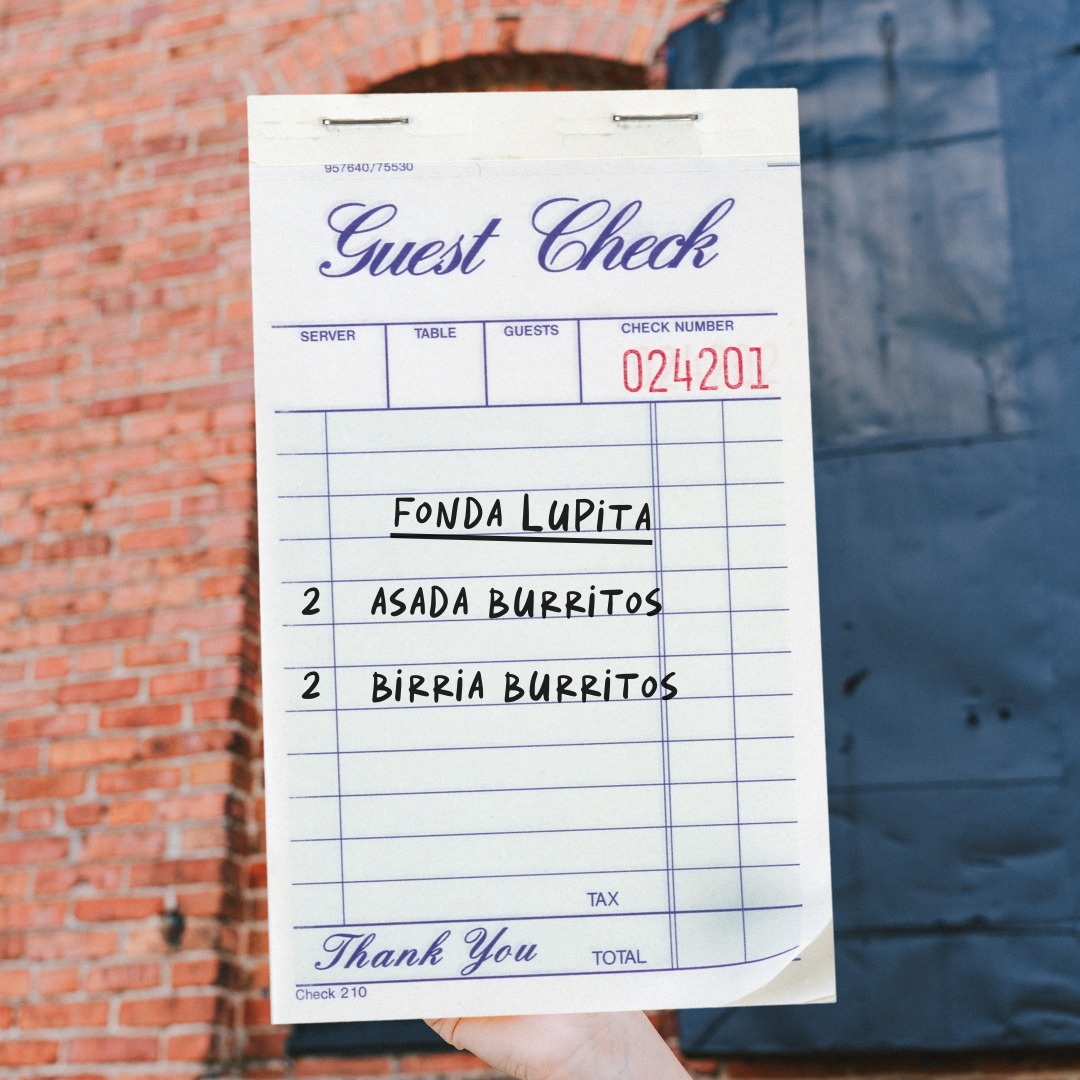 957640/75530
Guest Check
SERVER TABLE GUESTS CHECK NUMBER
024201
FONDA LUPITA
2 ASADA BURRITOS
2 BIRRIA BURRITOS
TAX
Thank You TOTAL
Check 210